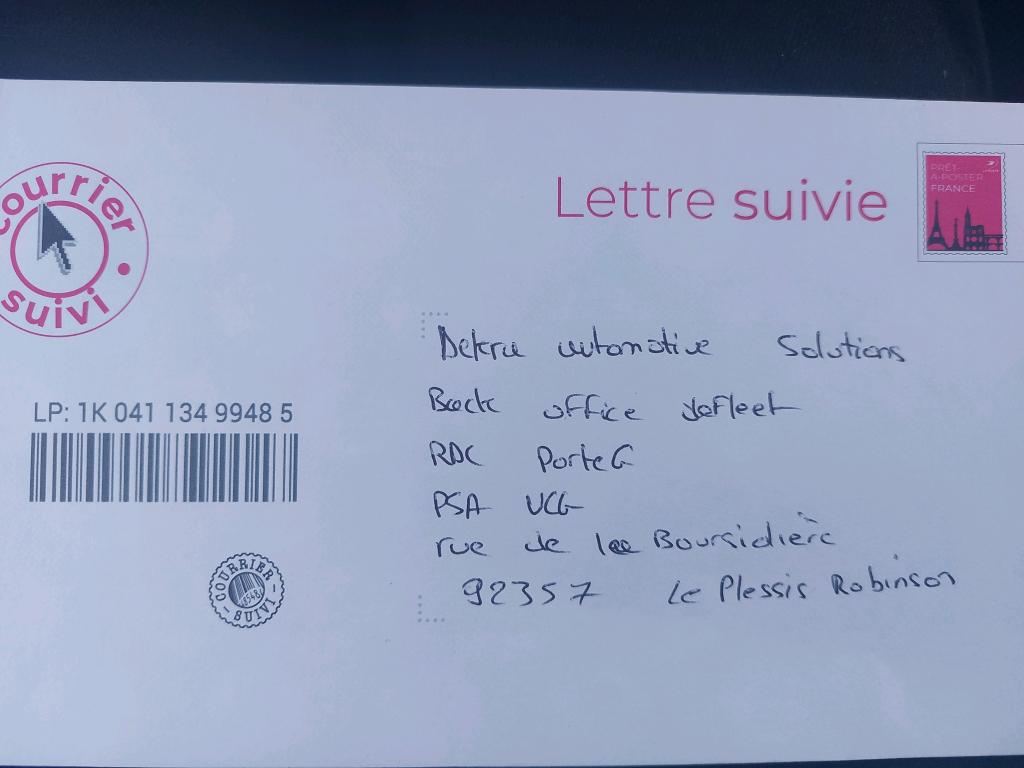 courrier suivi
Lettre suivie
PRÊT-
À-POSTER
FRANCE
Dekra automotive Solutions
Back office defleet
LP: 1K 041 134 9948 5
RDC Porte G
PSA VCG
rue de la Boursidière
92357 Le Plessis Robinson
COURRIER
9948
SUIVI